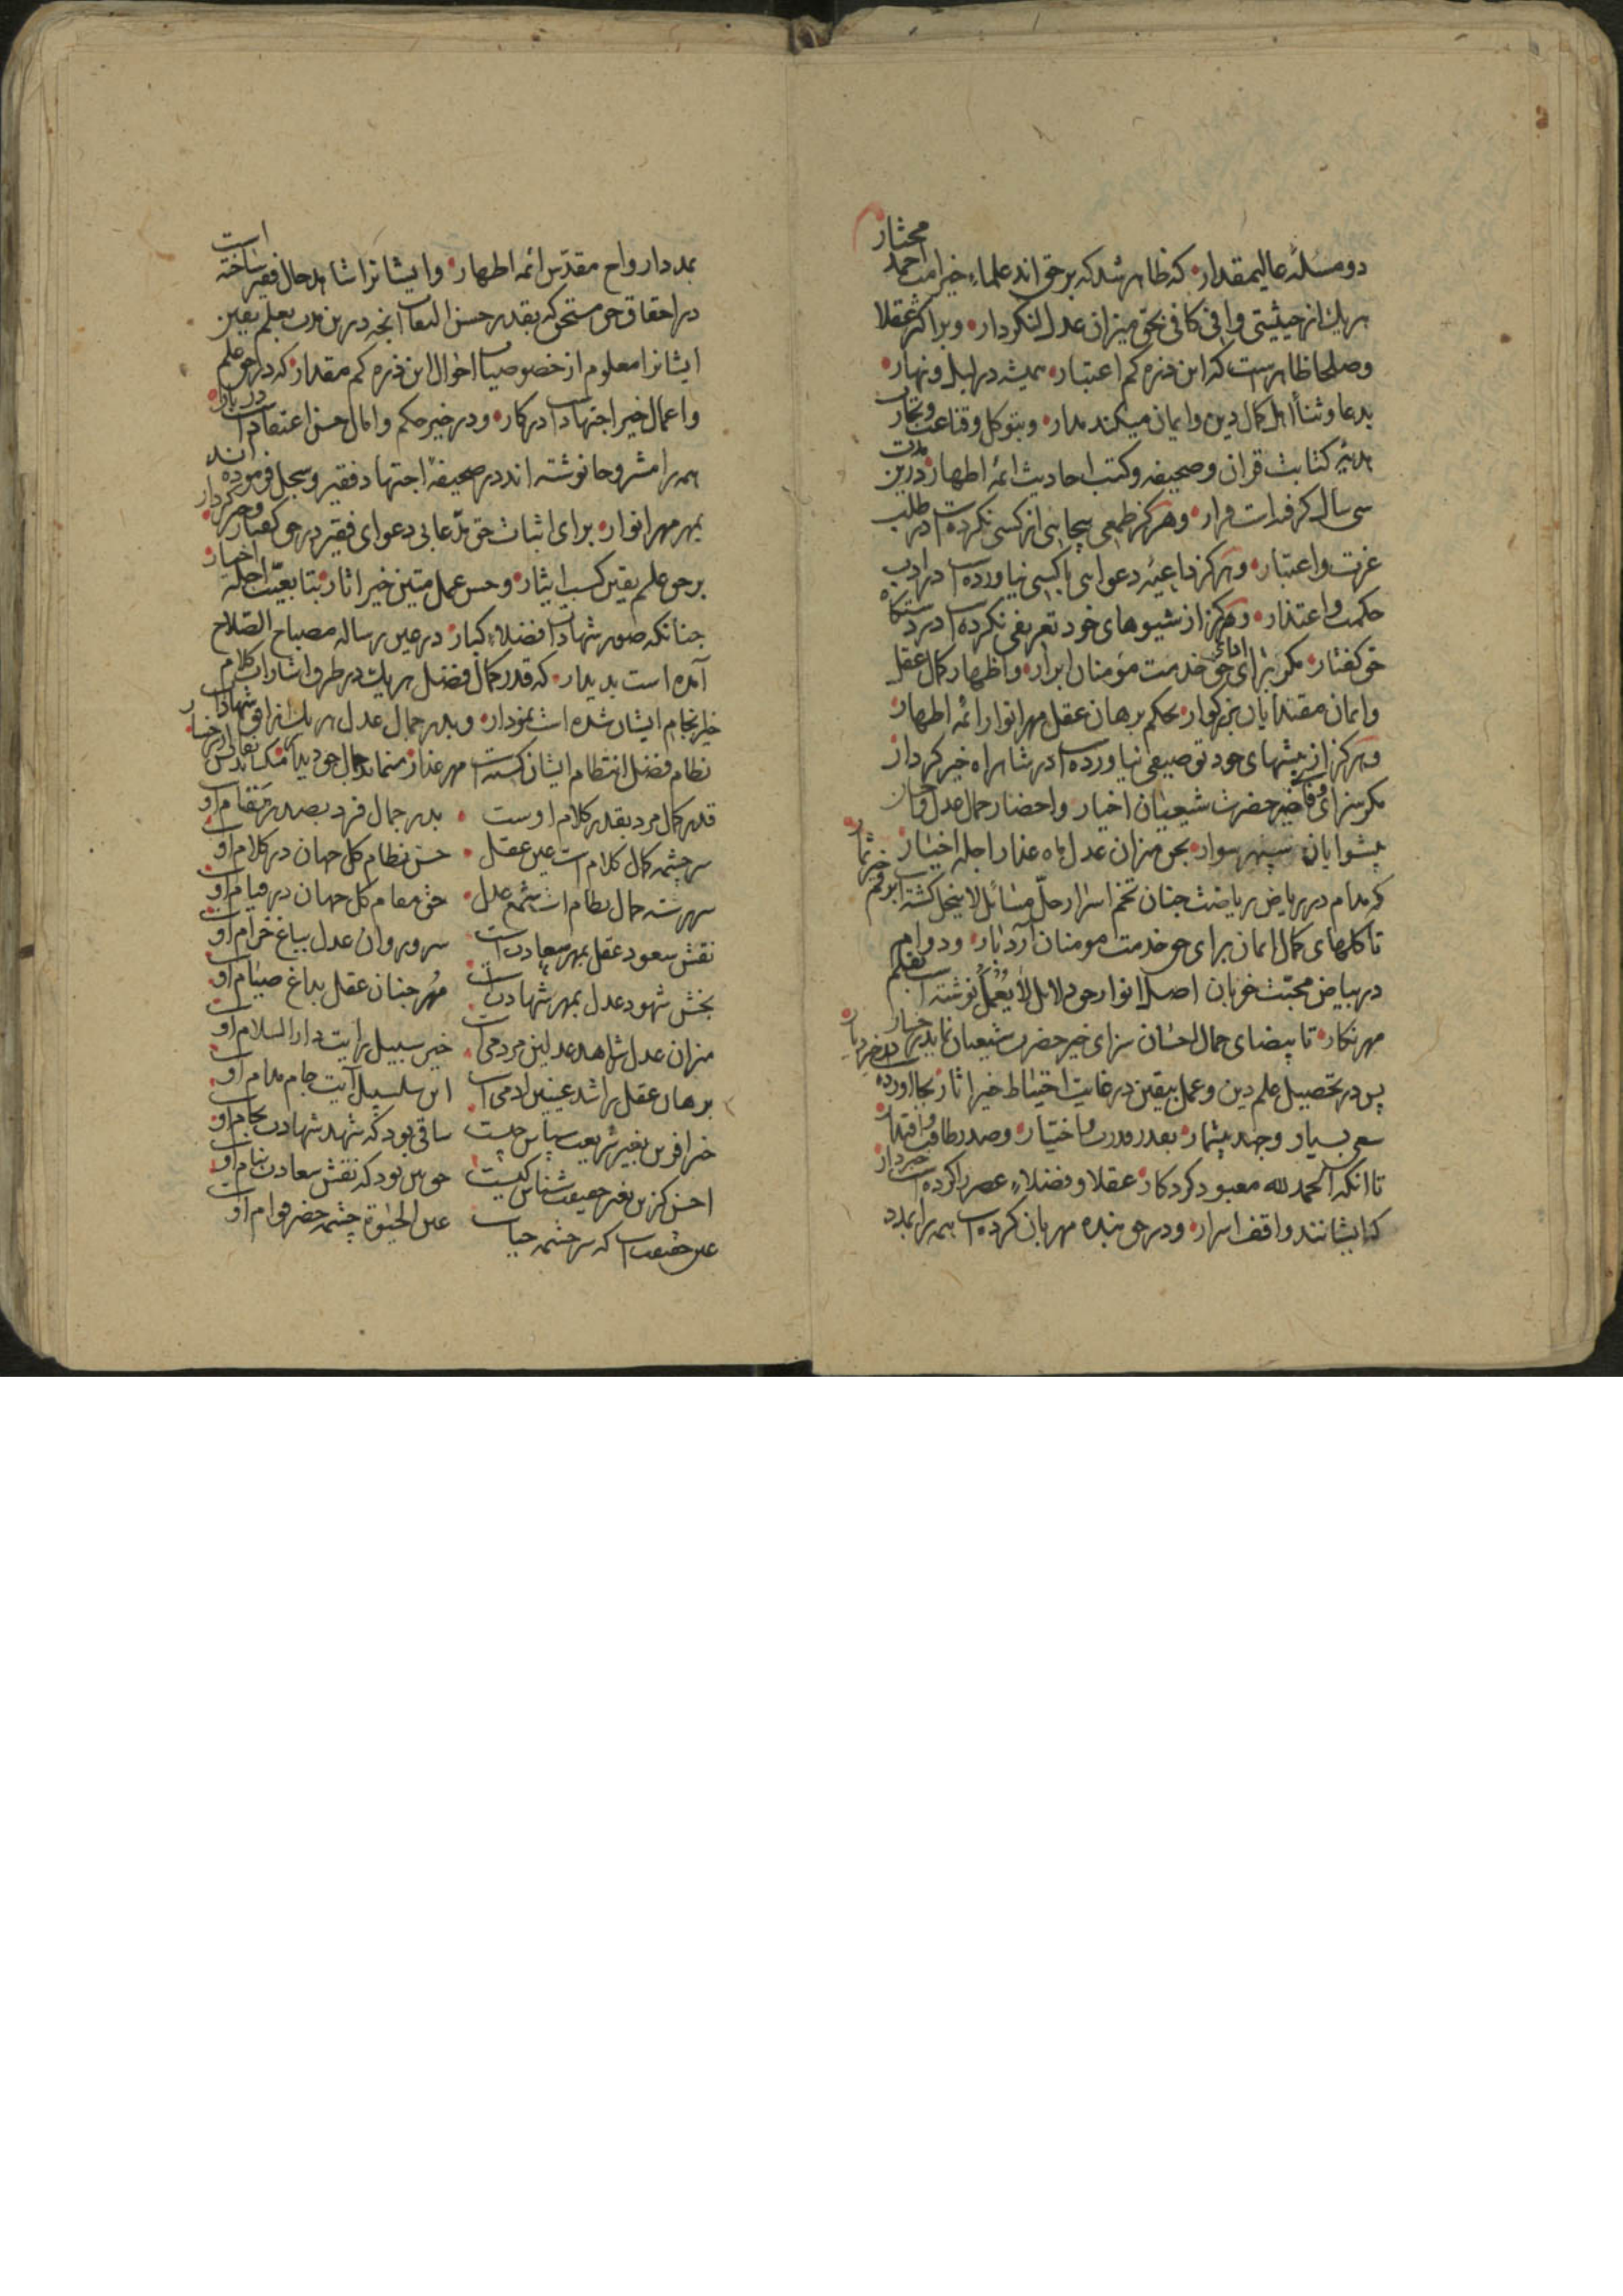 دو مسئله عالیمقدار که ظاهر شد که برحق اند علماء خیر امت احمد مختار
هریک از حیثیتی وافی کافی بحق میزان عدل لنکردار و بر اکثر عقلا
وصلحا ظاهرست که این ذره کم اعتبار همیشه در لیل و نهار
بدعا و ثنا اهل کمال دین و ایمان میکند مدار و بتوکل وقناعت
هدیه کتابت قران و صحیفه و کتب احادیث ائمه اطهار درین مدت
سی سال کرفته است قرار و هرکز طمعی بیجا بنی از کسی نکرده است در طلب
عزت و اعتبار و هرکز داعیه دعوایی باکسی نیاورده است در ادب
حکمت و اعتذار و هرکز از شیوهای خود تعریفی نکرده است در دستکاه
حق کفتار مکر برای حق خدمت مؤمنان ابرار و اظهار کمال عقل
و ایمان مقتدایان بزرکوار بحکم برهان عقل مهر انوار ائمه اطهار
و هرکز از پیشهای خود توصیفی نیاورده است در شاهراه خیر کردار
مکر سزای وفا خیر حضرت شیعیان اخیار و احضار جمال عدل
پیشوایان سپهر سوار بحق میزان عدل ماه عذار اجله اخیار
که مدام در ریاض ریاضت جنان تخم اسرار حل مسائل لاینحل کشته
تا کلهای کمال ایمان برای حق خدمت مومنان آرد بار و دوام
در بیاض محبت خوبان اصل انوار حق دلائل لا یعمل نوشته است بقلم
مهر نکار تا بیضای جمال احسان سزای خیر حضرت شیعیان نماید
پس در تحصیل علم دین و عمل یقین در غایت احتیاط خیر اثار بجا اورده
سعی بسیار و جهد بیشمار بقدر قدرت و اختیار و صدر طاقت و اقتدار
تا انکه الحمد لله معبود کردکار عقلا و فضلاء عصر را کرده است خبردار
که ایشانند واقف اسرار و در حق بنده مهربان کرده است همه را بمدد
بمدد ارواح مقدس ائمه اطهار و ایشانرا شاهد حال فقیر ساخته است
در احقاق حق مستحق که بقدر حسن التفات انچه درین مدت بعلم یقین
ایشانرا معلوم از خصوصیات احوال این ذره کم مقدار که در حق علم
و اعمال خیر اجتهاد است در کار و در خیر حکم و امال حسن اعتقاد است
همه را مشروحا نوشته اند در صحیفه اجتهاد فقیر و سجل فرموده اند
بمهر مهر انوار برای اثبات حق مدعایی دعوای فقیر در حق کفتار و خیر کردار
بر حق علم یقین کسب ایثار و حسن عمل متین خیر اثار بتابعیت اجله اخیار
چنانکه صور شهادات افضلاء کبار در عین رساله مصباح الصلاح
آمده است بدیدار که قدر کمال فضل هریک در طرف اشارات کلام
خیر انجام ایشان شده است نمودار و بدر جمال عدل هریک از افق شهادات
نظام فضل انتظام ایشان کسیت مهر عذار
قدر کمال مرد بقدر کلام اوست بدر جمال فرد بصدر مقام اوست
سرچشمه کمال کلام است عین عقل حسن نظام کل جهان در کلام اوست
سررشته جمال نظام است شمع عدل حق مقام کل جهان در قیام اوست
نقش سعود عقل بمهر سعادت است سرو روان عدل بباغ خرام اوست
بخش شهود عدل بمهر شهادت است مهر جنان عقل بداغ صیام اوست
میزان عدل شاهد عدلین مردمی است خیر سبیل رایت دار السلام اوست
برهان عقل راشد عینین ادمی است این سلسبیل آیت جام مدام اوست
خیر افرین بغیر شریعت سپاس چیست ساقی بود که شهد شهادت بجام اوست
احسن کزین بغیر حقیقت شناس کیست حق بین بود که نقش سعادت بنام اوست
عین حقیقت است که سرچشمه حیات عین الحیوة چشمه خضر هوام اوست